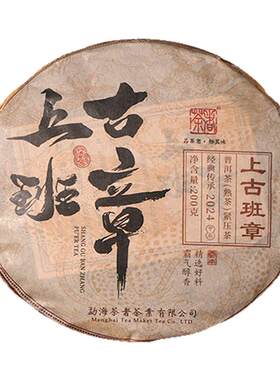 茶者
品茶意·聊茶味
上古班章
SHANG GU BAN ZHANG
PU'ER TEA
上古班章
普洱茶(熟茶)紧压茶
经典传承2024
净含量:200克
精选好料
霸气醇香
勐海茶者茶業有限公司
Menghai Tea Maker Tea Co., LTD